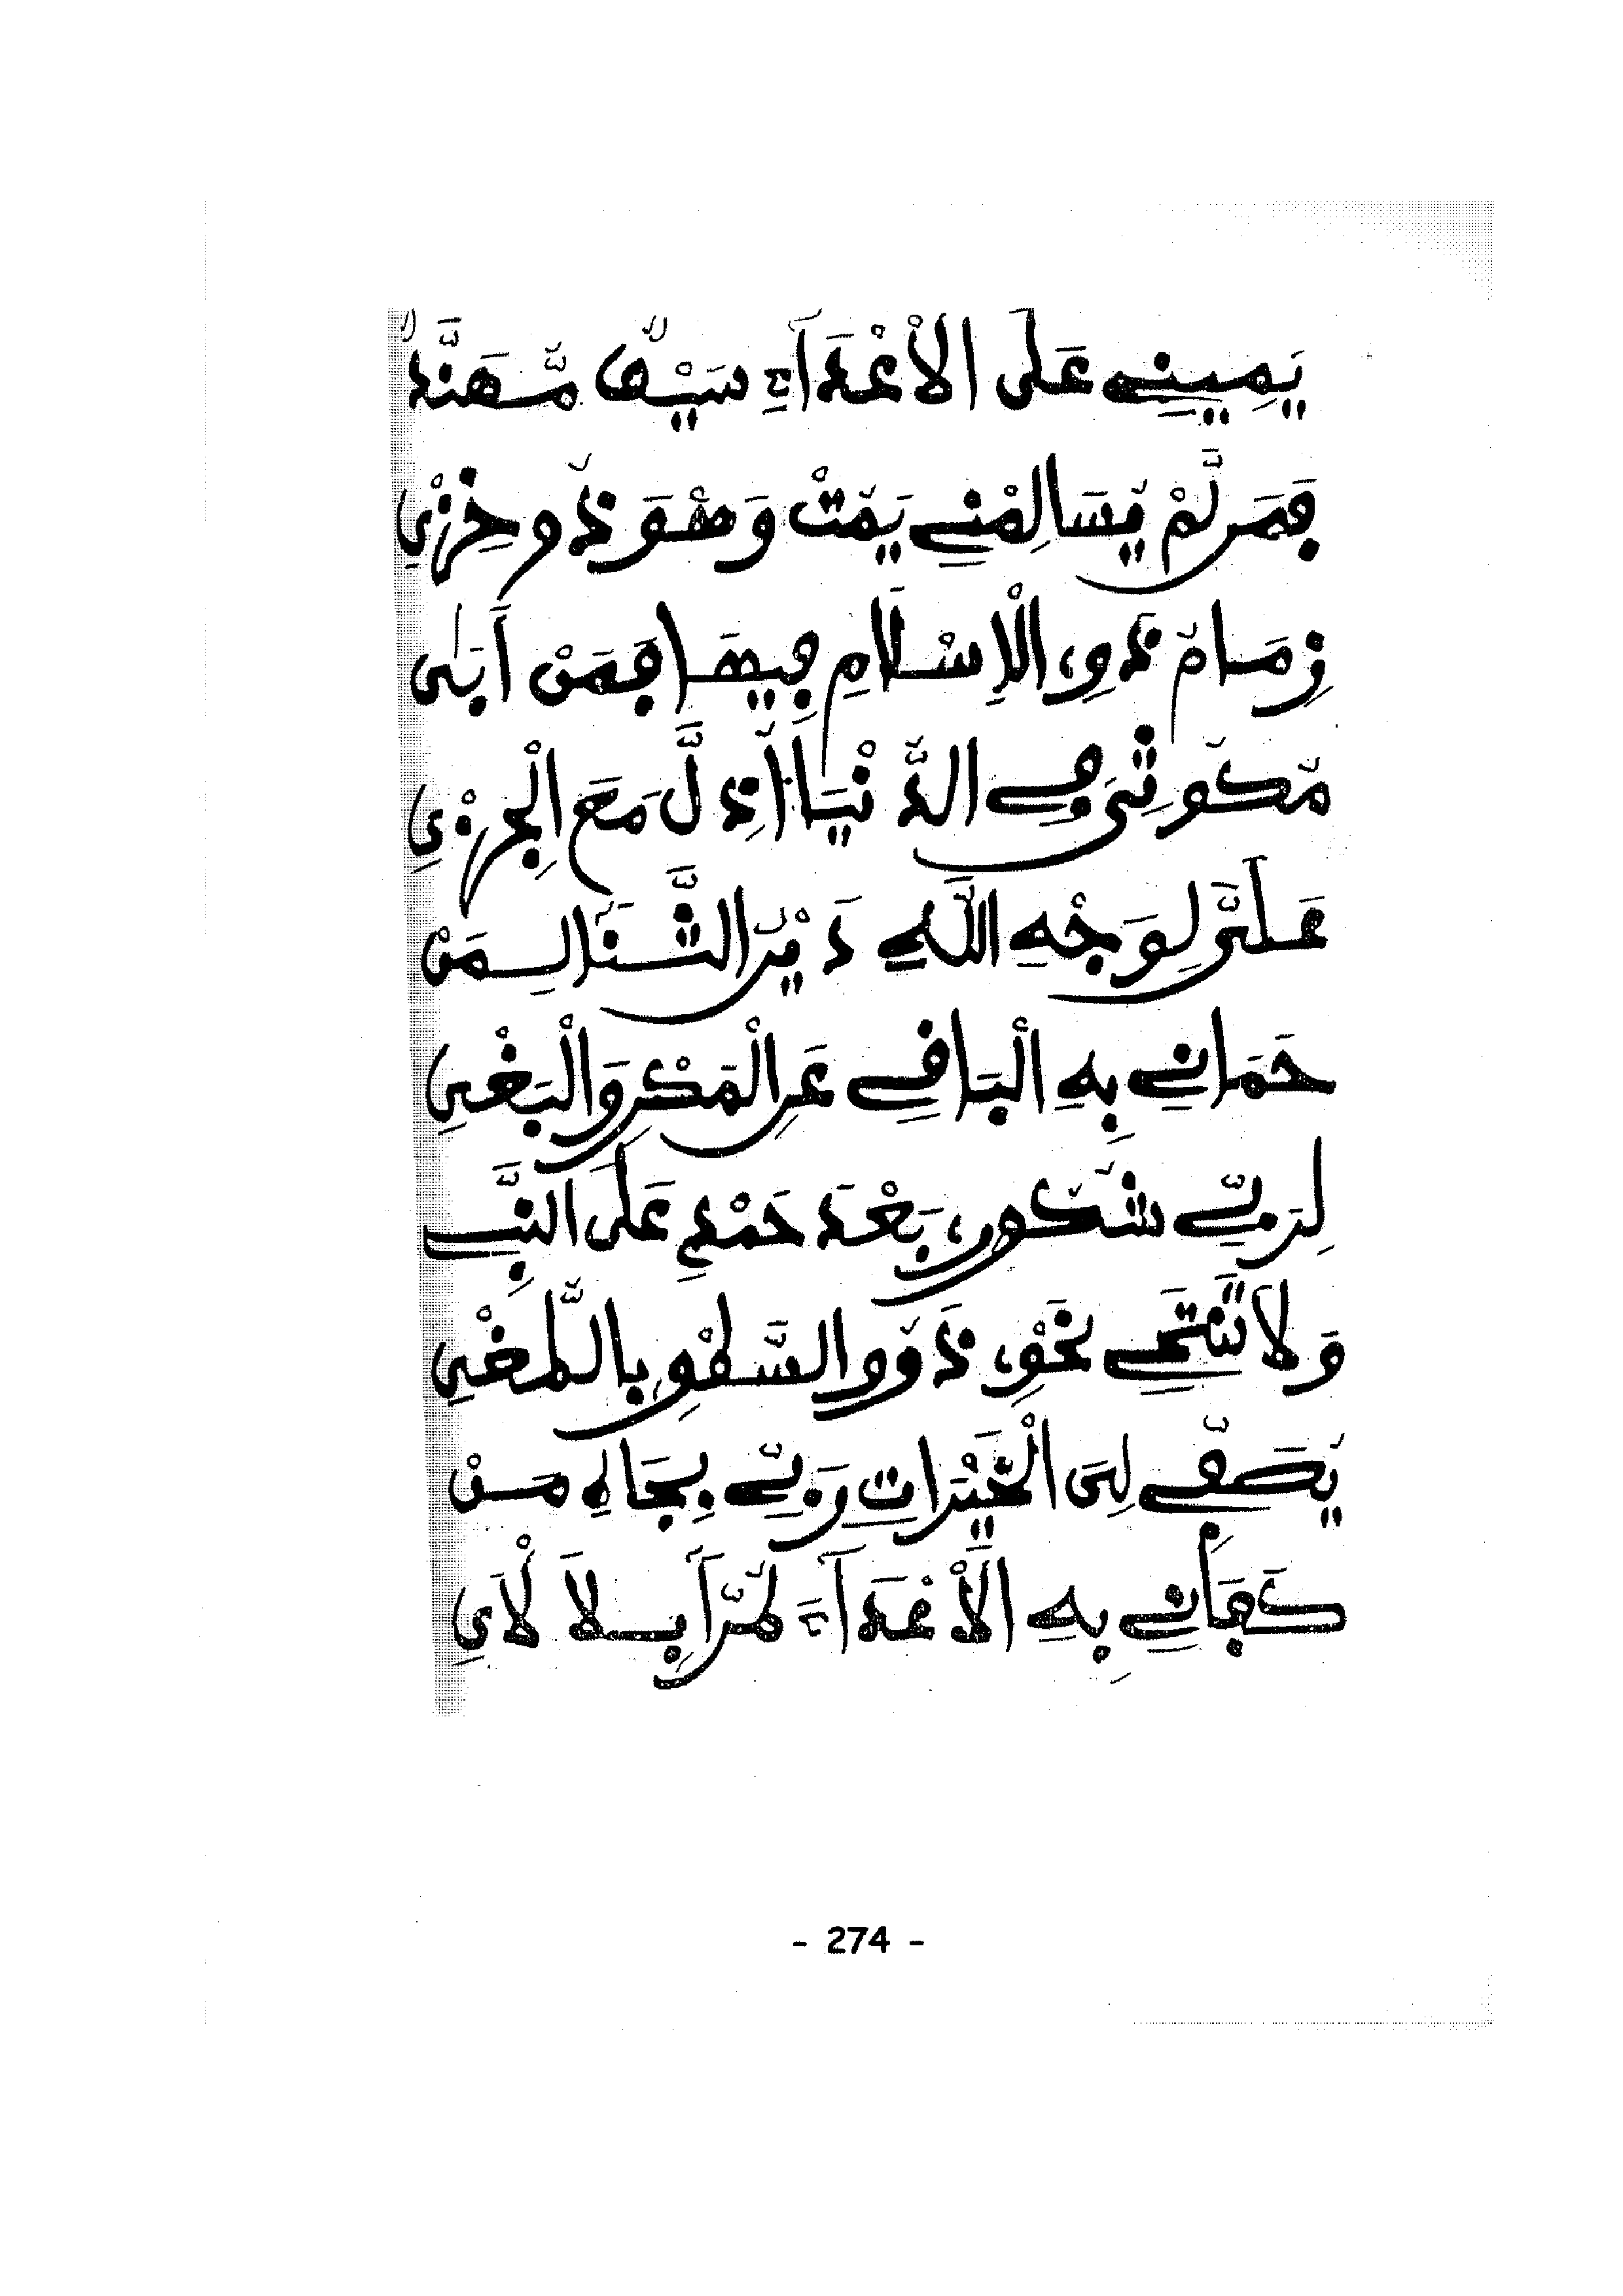 يَمِينِے عَلَى الْأَعْدَآءِ سَيْفٌ مُّهَنَّدٌ
فَمَن لَّمْ يُسَالِمْنِے يَمُتْ وَهْوَ ذُو خِزْيِ
زِمَامُ ذَوِي الْإِسْلَامِ فِيهَا فَمَنْ أَبَى
مُكُوثِىَ فِے الدُّنْيَا أُذِلَّ مَعَ الْجِزْيِ
عَلَىَّ لِوَجْهِ اللَّهِ دَيْنُ الثَّنَا لِمَنْ
حَمَانِے بِهِ الْبَاقِے عَنِ الْمَكْرِ وَالْبَغْيِ
لِرَبِّے شُكُورِي بَعْدَ حَمْدٍ عَلَى النَّبِے
وَلَا تَنْتَحِے نَحْوِي ذَوُو السَّهْوِ بِاللَّغْيِ
يُصَفِّے لِىَ الْخَيْرَاتِ رَبِّے بِجَاهِ مَنْ
كَفَانِے بِهِ الْأَعْدَآءَ لُمْرًا بِلَا لَأْيِ
- 274 -